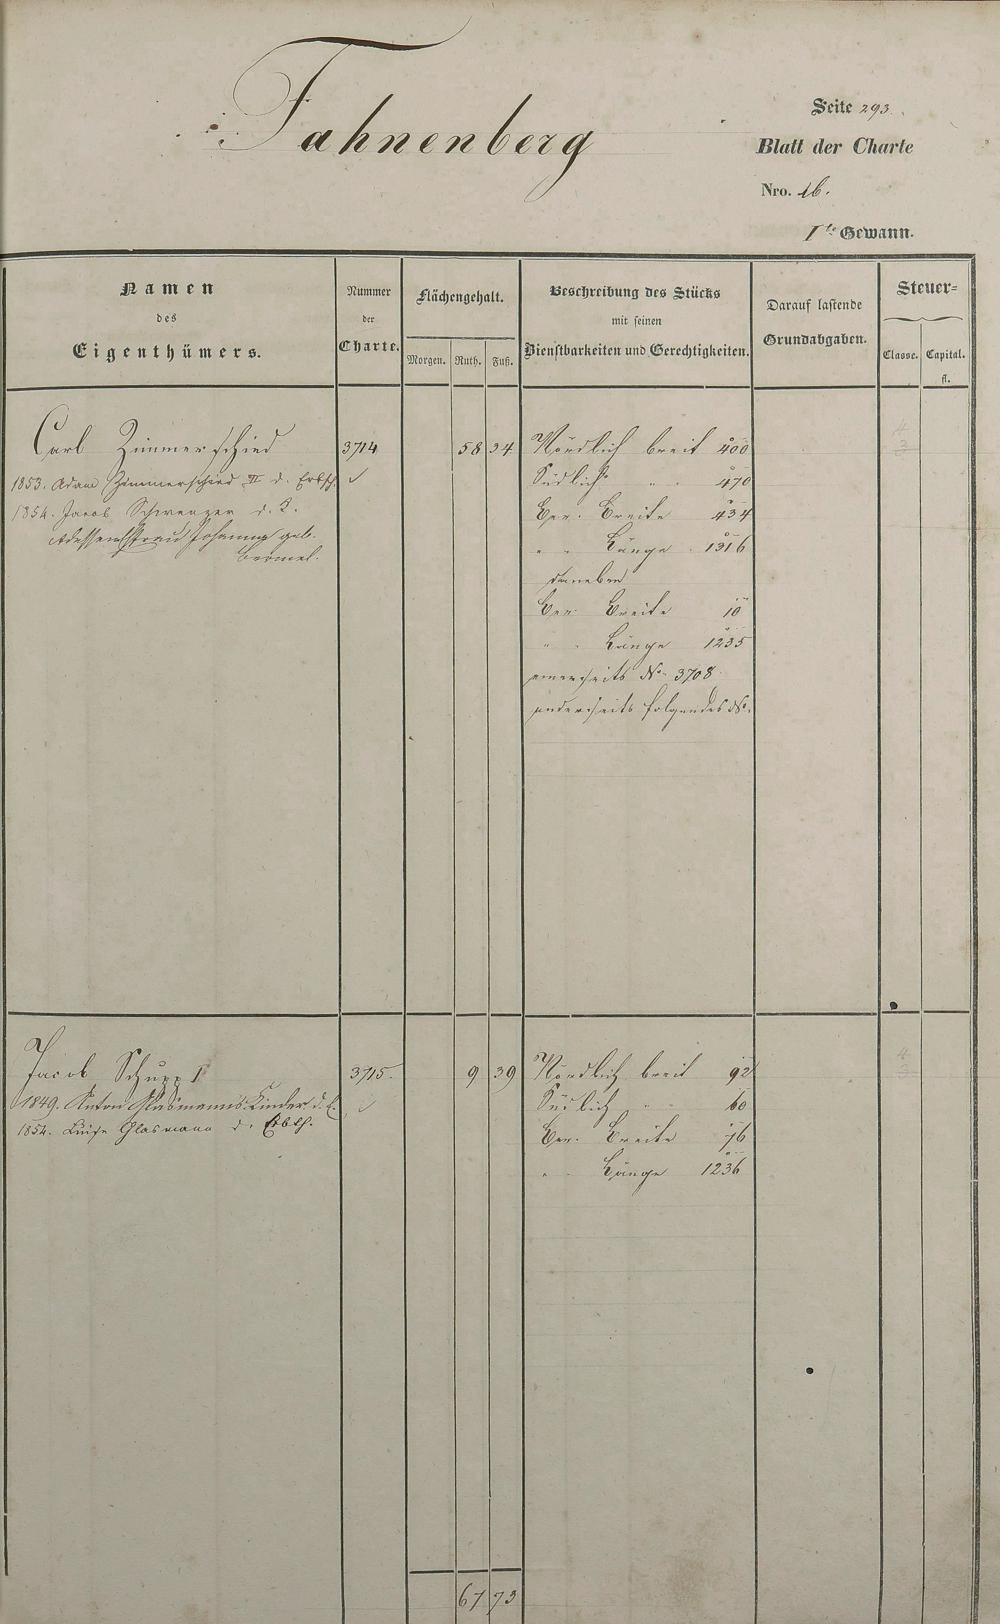 Fahnenberg
Seite 293.
Blatt der Charte
Nro. 16.
1te Gewann.
Namen
des
Eigenthümers.
Nummer
der
Charte.
Flächengehalt.
Morgen. Ruth. Fuß.
Beschreibung des Stücks
mit seinen
Dienstbarkeiten und Gerechtigkeiten.
Darauf lastende
Grundabgaben.
Steuer-
Classe. Capital.
fl.
Carl Zimmerschied 3714 58 34 Nördlich breit 400
1853. Adam Zimmerschied II d. Erbsch. Südlich " " 470
1854. Jacob Schwenzer d. K. Ger. Breite 434
Johanna geb. " " Länge 1316
daneben
Ger. Breite 10
" " Länge 1235
einerseits No 3708
anderseits folgendes No.
4
3
Jacob Schupp I 3715. 9 39 Nördlich breit 92
1849. Anton Glasmanns Kinder d. E. Südlich " " 60
1854. Luise Glasmann d. Erbth. Ger. Breite 76
" " Länge 1236
4
3
67 73